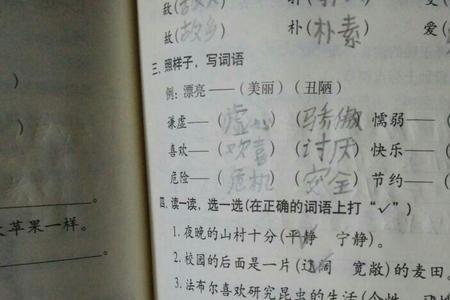 故(
故(故乡) 朴(朴素) 爱(
三、照样子，写词语
例：漂亮——(美丽)(丑陋)
谦虚——(虚心)(骄傲) 懦弱——(
喜欢——(欢喜)(讨厌) 快乐——(
危险——(危机)(安全) 节约——(
四、读一读，选一选(在正确的词语上打“✓”)
1.夜晚的山村十分(平静 宁静)。
2.校园的后面是一片(辽阔 宽敞)的麦田。
3.法布尔喜欢研究昆虫的生活(个性
苹果一样。